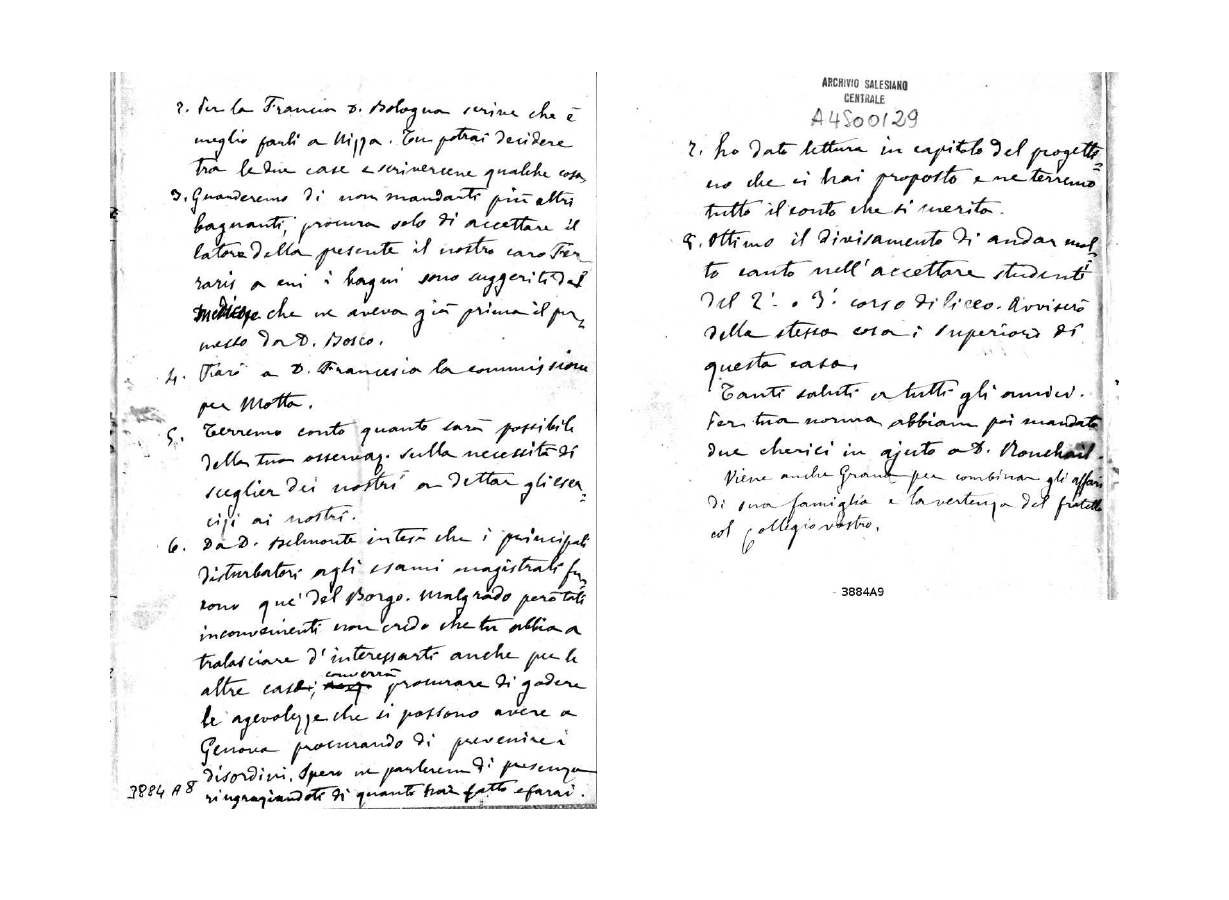 2. Per la Francia D. Bologna scrive che è
meglio farli a Nizza. Tu potrai decidere
tra le due case e scrivercene qualche cosa
3. Guarderemo di non mandarti più altri
bagnanti, procura solo di accettare il
latore della presente il nostro caro Fer
raris a cui i bagni sono suggeriti dal
medico che ne aveva già prima il per
messo da D. Bosco.
4. Farò a D. Francesia la commissione
per Motta.
5. Terremo conto quanto sarà possibile
della tua osservaz. sulla necessità di
sceglier dei nostri a dettar gli eser=
cizi ai nostri.
6. Da D. Belmonte intesi che i principali
disturbatori agli esami magistrali fu
rono que' del Borgo. Malgrado però tali
inconvenienti non credo che tu abbia a
tralasciare d'interessarti anche per le
converrà
altre case; procurare di godere
le agevolezze che si possono avere a
Genova procurando di prevenire i
disordini. Spero ne parleremo di presenza
ringraziandoti di quanto hai fatto e farai.
3884 A8
ARCHIVIO SALESIANO
CENTRALE
A4500129
7. ho dato lettura in capitolo del progetti=
no che ci hai proposto e ne terremo
tutto il conto che si merita.
8. Ottimo il divisamento di andar mol
to cauto nell'accettare studenti
del 2°. o 3°. corso di liceo. Avviserò
della stessa cosa i Superiori di
questa casa.
Tanti saluti a tutti gli amici.
Per tua norma abbiam poi mandato
due cherici in ajuto a D. Ronchail
Viene anche Grana per combinar gli affari
di sua famiglia e la vertenza del fratello
col collegio vostro.
3884A9